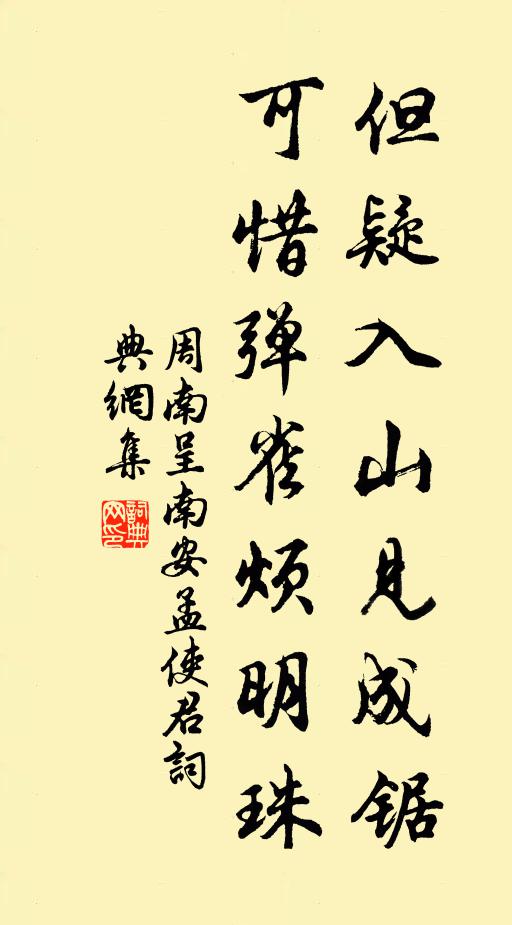 但疑入山见成锯
可惜弹雀烦明珠
周南呈南安孟使君詞
典網集
詞典网印